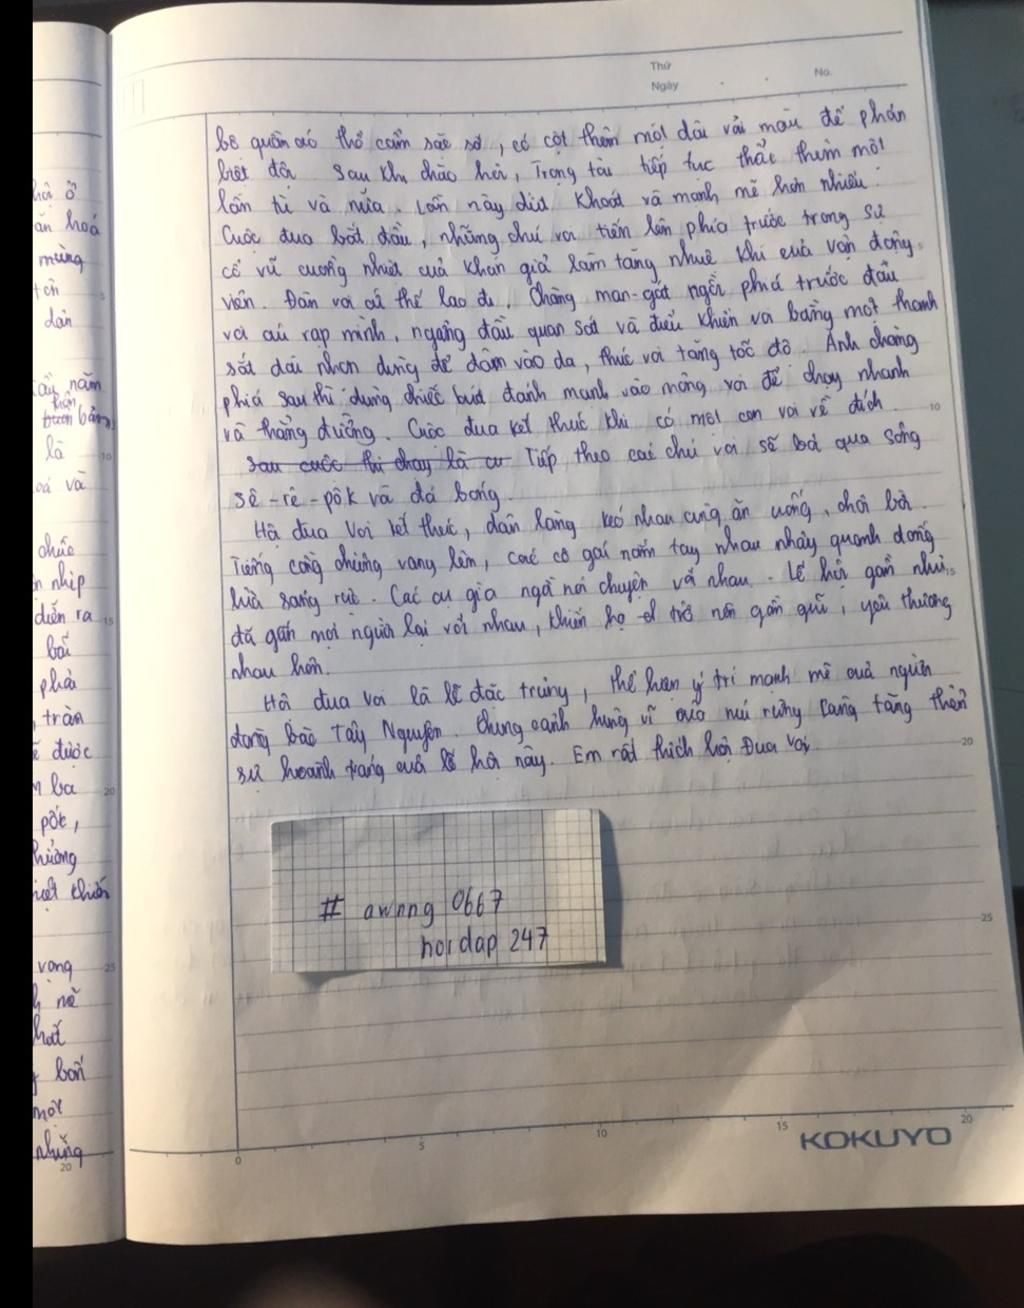 hội ở
ăn hoá
mừng
dân
năm
là
và
chức
nhịp
diễn ra
bãi
phải
, tràn
được
ba
pôk,
hưởng
khiến
vang
bốn
một
những
20
Thứ
Ngày
No.
bộ quần áo thổ cẩm sặc sỡ, có cột thêm một dải vải màu để phân
biệt đội. Sau khi chào hỏi, Trọng tài tiếp tục thổi thêm một
lần tù và nữa. Lần này dứt khoát và mạnh mẽ hơn nhiều.
Cuộc đua bắt đầu, những chú voi tiến lên phía trước trong sự
cổ vũ cuồng nhiệt của khán giả làm tăng nhuệ khí của vận động
viên. Đàn voi cứ thế lao đi. Chàng man-gát ngồi phía trước đầu
voi cúi rạp mình, ngẩng đầu quan sát và điều khiển voi bằng một thanh
sắt dài nhọn dùng để đâm vào da, thúc voi tăng tốc độ. Anh chàng
phía sau thì dùng chiếc búa đánh mạnh vào mông voi để chạy nhanh
và thẳng đường. Cuộc đua kết thúc khi có một con voi về đích.
sau cuộc thi chạy là cu Tiếp theo các chú voi sẽ bơi qua sông
sê-rê-pôk và đá bóng.
Hội đua Voi kết thúc, dân làng kéo nhau cùng ăn uống, chơi bời.
Tiếng cồng chiêng vang lên, các cô gái nắm tay nhau nhảy quanh đống
lửa sáng rực. Các cụ già ngồi nói chuyện với nhau. Lễ hội gần như
đã gắn mọi người lại với nhau, khiến họ trở nên gần gũi, yêu thương
nhau hơn.
Hội đua voi là lễ đặc trưng, thể hiện ý trí mạnh mẽ của người
đồng bào Tây Nguyên. Khung cảnh hùng vĩ của núi rừng càng tăng thêm
sự hoành tráng của lễ hội này. Em rất thích hội Đua Voi.
# awnng 0667
hoidap 247
0 5 10 15 20
KOKUYO